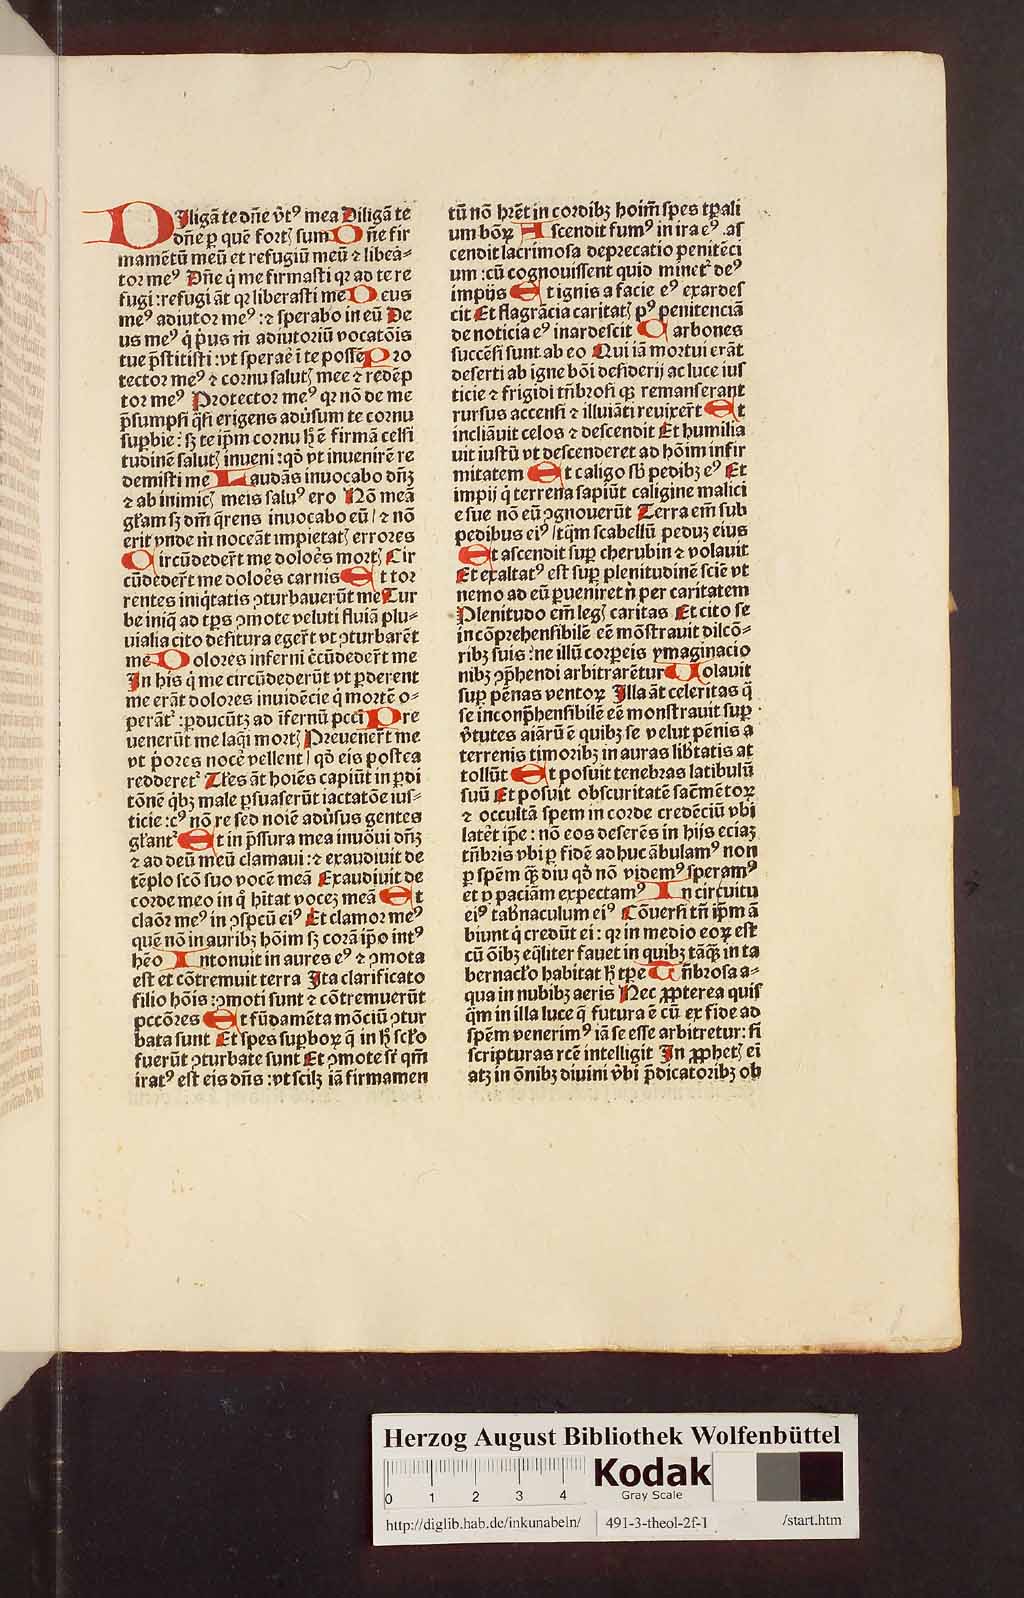 DIligā te dn̄e v̓tꝰ mea Diligā te
dn̄e ꝑ quē fortꝫ sum Dn̄e fir
mamētū meū et refugiū meū ⁊ libea⸗
tor meꝰ Dn̄e q̇ me firmasti qꝛ ad te re
fugi : refugi āt qꝛ liberasti me Deus
meꝰ adiutor meꝰ : ⁊ sperabo in eū De
us meꝰ q̇ p̓us m̄ adiutoriū vocatōis
tue p̄stitisti : vt sperae̓ ī te possē Pro
tector meꝰ ⁊ cornu salutꝫ mee ⁊ redēp
tor meꝰ Protector meꝰ qꝛ nō de me
p̄sumpsi q̇si erigens adūsum te cornu
suꝑbie : sꝫ te ip̄m cornu h̄ ē firmā celsi
tudinē salutꝫ inueni : qd̓ vt inuenirē re
demisti me Laudās inuocabo dn̄ꝫ
⁊ ab inimicꝫ meis saluꝰ ero Nō meā
gl̄am sꝫ dn̄i q̄rens inuocabo eū / ⁊ nō
erit vnde m̄ noceāt impietatꝫ errores
Circūdeder̄t me doloēs mortꝫ Cir
cūdeder̄t me doloēs carnis Et tor
rentes iniq̇tatis ꝯturbauerūt me Tur
be iniq̄ ad tp̄s ꝯmote veluti fluiā plu⸗
uialia cito defitura eger̄t vt ꝯturbarēt
me Dolores inferni c̄cūdeder̄t me
In his q̇ me circūdederūt vt ꝑderent
me erāt dolores inuidēcie q̇ mortē o⸗
perāt᷑ : ꝑducūtꝫ ad īfernū pcc̄i Pre
uenerūt me laq̇i mortꝫ Preuener̄t me
vt p̓ores nocē vellent / qd̓ eis postea
redderet᷑ Tl̄es āt hoīes capiūt in ꝑdi
tōnē q̇bꝫ male ꝑsuaserūt iactatōe ius⸗
ticie : cꝰ nō re sed noīe adūsus gentes
gl̄ant᷑ Et in p̄ssura mea inuōui dn̄ꝫ
⁊ ad deū meū clamaui : ⁊ exaudiuit de
tēplo scō suo vocē meā Exaudiuit de
corde meo in q̊ hītat voceꝫ meā Et
claōr meꝰ in ꝯspcū eiꝰ Et clamor meꝰ
quē nō in auribꝫ hōim sꝫ corā ip̄o intꝰ
hēo Intonuit in aures eꝰ ⁊ ꝯmota
est et cōtremuit terra Ita clarificato
filio hōis : ꝯmoti sunt ⁊ cōtremuerūt
pccōres Et fūdamēta mōciū ꝯtur
bata sunt Et spes suꝑboꝝ q̄ in hꝰ scl̄o
fuerūt ꝯturbate sunt Et ꝯmote sr̄ qm̄
iratꝰ est eis dn̄s : vt scilꝫ iā firmamen
tū nō hrēt in cordibꝫ hoim̄ spes tꝑali
um bōꝝ Ascendit fumꝰ in ira eꝰ . as
cendit lacrimosa deprecatio penitēci
um : cū cognouissent quid minet᷑ deꝰ
impijs Et ignis a facie eꝰ exardes
cit Et flagrācia caritatꝫ pꝰ penitenciā
de noticia eꝰ inardescit Carbones
succēsi sunt ab eo Qui iā mortui erāt
deserti ab igne bōi desiderij ac luce ius
ticie ⁊ frigidi tn̄brosi qꝫ remanserant
rursus accensi ⁊ illuiāti reuixer̄t Et
incliāuit celos ⁊ descendit Et humilia
uit iustū vt descenderet ad hōim infir
mitatem Et caligo sb̄ pedibꝫ eꝰ Et
impij q̇ terrena sapiūt caligine malici
e sue nō eū ꝯgnouerūt Terra em̄ sub
pedibus eiꝰ / tq̄m scabellū peduꝫ eius
Et ascendit suꝑ cherubin ⁊ volauit
Et exaltatꝰ est suꝑ plenitudinē sciē vt
nemo ad eū ꝑueniret n̄ per caritatem
Plenitudo em̄ legꝫ caritas Et cito se
incōprehensibilē eē mōstrauit dilcō⸗
ribꝫ suis : ne illū corꝑeis ymaginacio
nibꝫ ꝯp̄hendi arbitrarētur Uolauit
suꝑ pēnas ventoꝝ Illa āt celeritas q̄
se inconp̄hensibilē eē monstrauit suꝑ
v̓tutes aiārū ē quibꝫ se velut pēnis a
terrenis timoribꝫ in auras lib̄tatis at
tollūt Et posuit tenebras latibulū
suū Et posuit obscuritatē saēmētoꝝ
⁊ occultā spem in corde credēciū vbi
latēt ip̄e : nō eos deserēs in hijs eciaꝫ
tn̄bris vbi ꝑ fidē adhuc ābulamꝰ non
ꝑ spēm qꝫ̄ diu qd̓ nō videmꝰ speramꝰ
et ꝑ paciām expectamꝰ In circuitu
eiꝰ tab̄naculum eiꝰ Cōuersi tn̄ ip̄m ā
biunt q̇ credūt ei : qꝛ in medio eoꝝ est
cū ōibꝫ eq̄liter fauet in quibꝫ tāqꝫ̄ in ta
bernacl̄o habitat hꝰ tp̄e Tn̄brosa a⸗
qua in nubibꝫ aeris Nec ꝓpterea quis
q̄m in illa luce q̄ futura ē cū ex fide ad
spēm venerimꝰ iā se esse arbitretur : si
scripturas rcē intelligit In ꝓphetꝫ ei
atꝫ in ōnibꝫ diuini v̓bi p̄dicatoribꝫ ob
Herzog August Bibliothek Wolfenbüttel
0 1 2 3 4
Kodak
Gray Scale
http://diglib.hab.de/inkunabeln/ 491-3-theol-2f-1 /start.htm